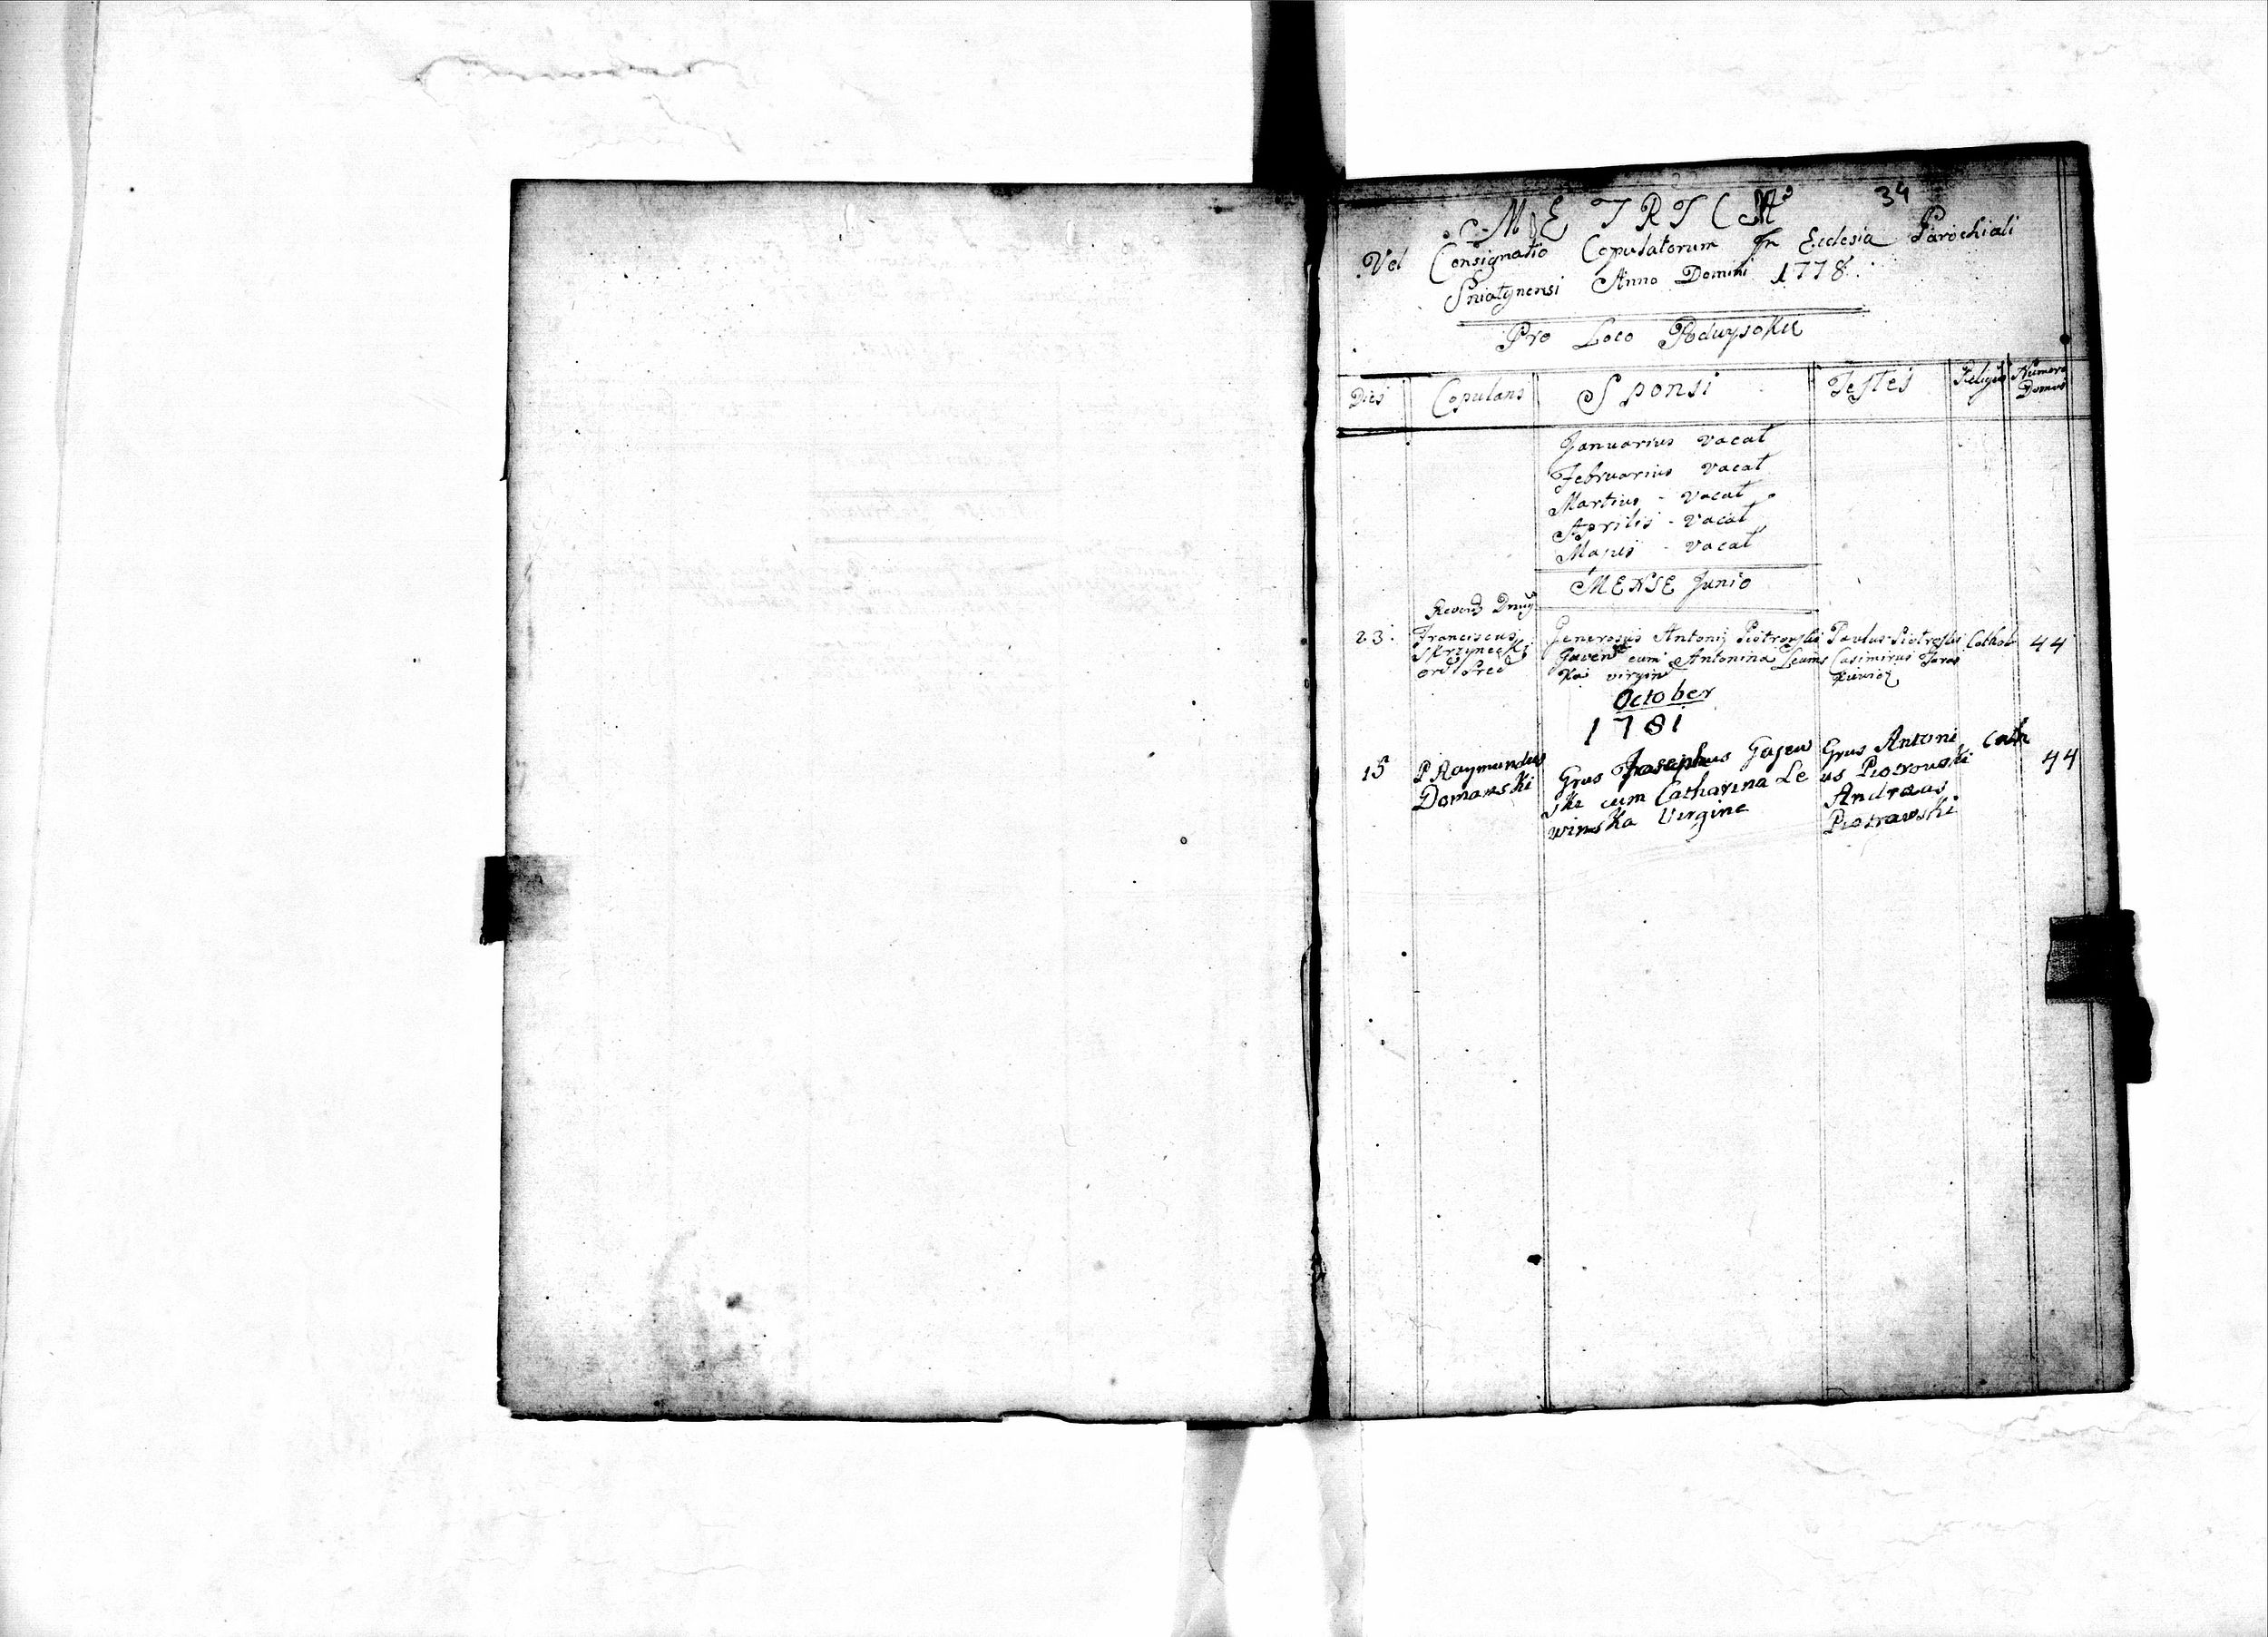 34
METRICA
Vel Consignatio Copulatorum In Ecclesia Parochiali
Sniatynensi Anno Domini 1778
Pro Loco Podwysokie
Dies Copulans Sponsi Testes Religio Numero Domus
Januarius vacat
Februarius vacat
Martius - vacat
Aprilis - vacat
vacat
MENSE Junio
Reverd
23. Franciscus Generosus Antonij Piotrowski Paulus Cathol 44
Skrzynecki cum Antonina Casimirus
virgin
October
1781
15 P Raymundus Grus Josephus Gajew Grus Antoni Cath 44
Domanski ski cum Catharina Le us Piotrowski
winska Virgine Andreas
Piotrowski